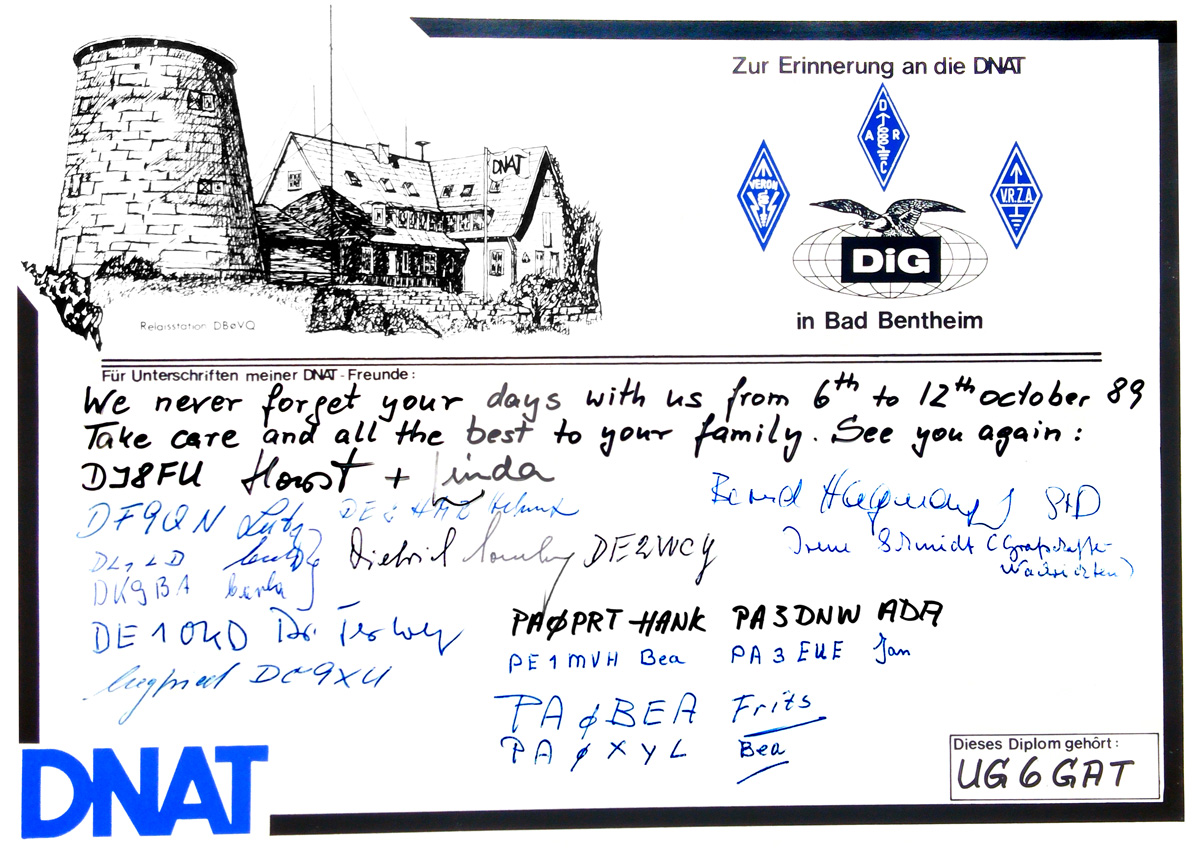 DNAT
Relaisstation DBøVQ
Zur Erinnerung an die DNAT
DARC
VERON
V.R.Z.A.
DiG
in Bad Bentheim
Für Unterschriften meiner DNAT-Freunde:
We never forget your days with us from 6th to 12th october 89
Take care and all the best to your family. See you again:
DJ8FU Horst + Linda
DF9QN Lutz
Bernd Hagemann StD
Dietrich DE2WCY
Irene Schmidt (Grafschafter
Nachrichten)
DK9BA
PAøPRT HANK PA3DNW ADA
DE1OKD Dr. Terwey
PE1MVH Bea PA3EUE Jan
Siegfried DC9XU
PAøBEA Frits
PAøXYL Bea
DNAT
Dieses Diplom gehört:
UG6GAT